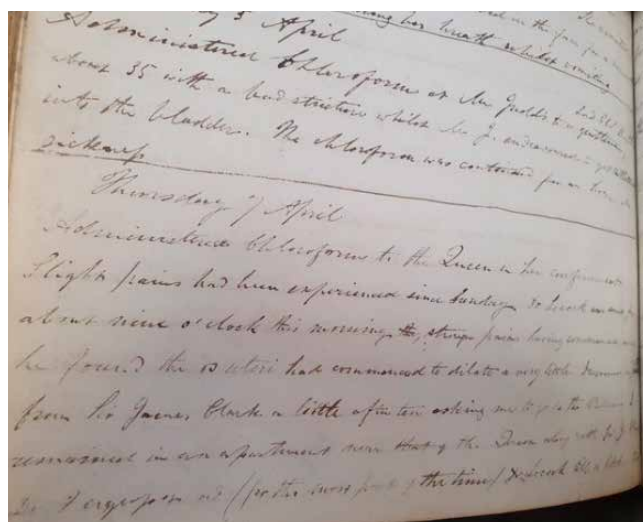 having her breath whilst vomiting
5 April
Administered Chloroform at Mr
about 35 with a bad stricture whilst Mr J. endeavoured to get
into the bladder. The chloroform was continued for an hour
sickness
Thursday 7 April
Administered Chloroform to the Queen in her confinement
Slight pains had been experienced since Sunday. Dr Locock was
about nine o'clock this morning, stronger pains having commenced, and
he found the os uteri had commenced to dilate a very little. I received
from Sir James Clark a little after ten asking me to go to the
remained in an apartment near that of the Queen along with Sir J.
Dr Ferguson and (for the most part of the time) Dr Locock till a little